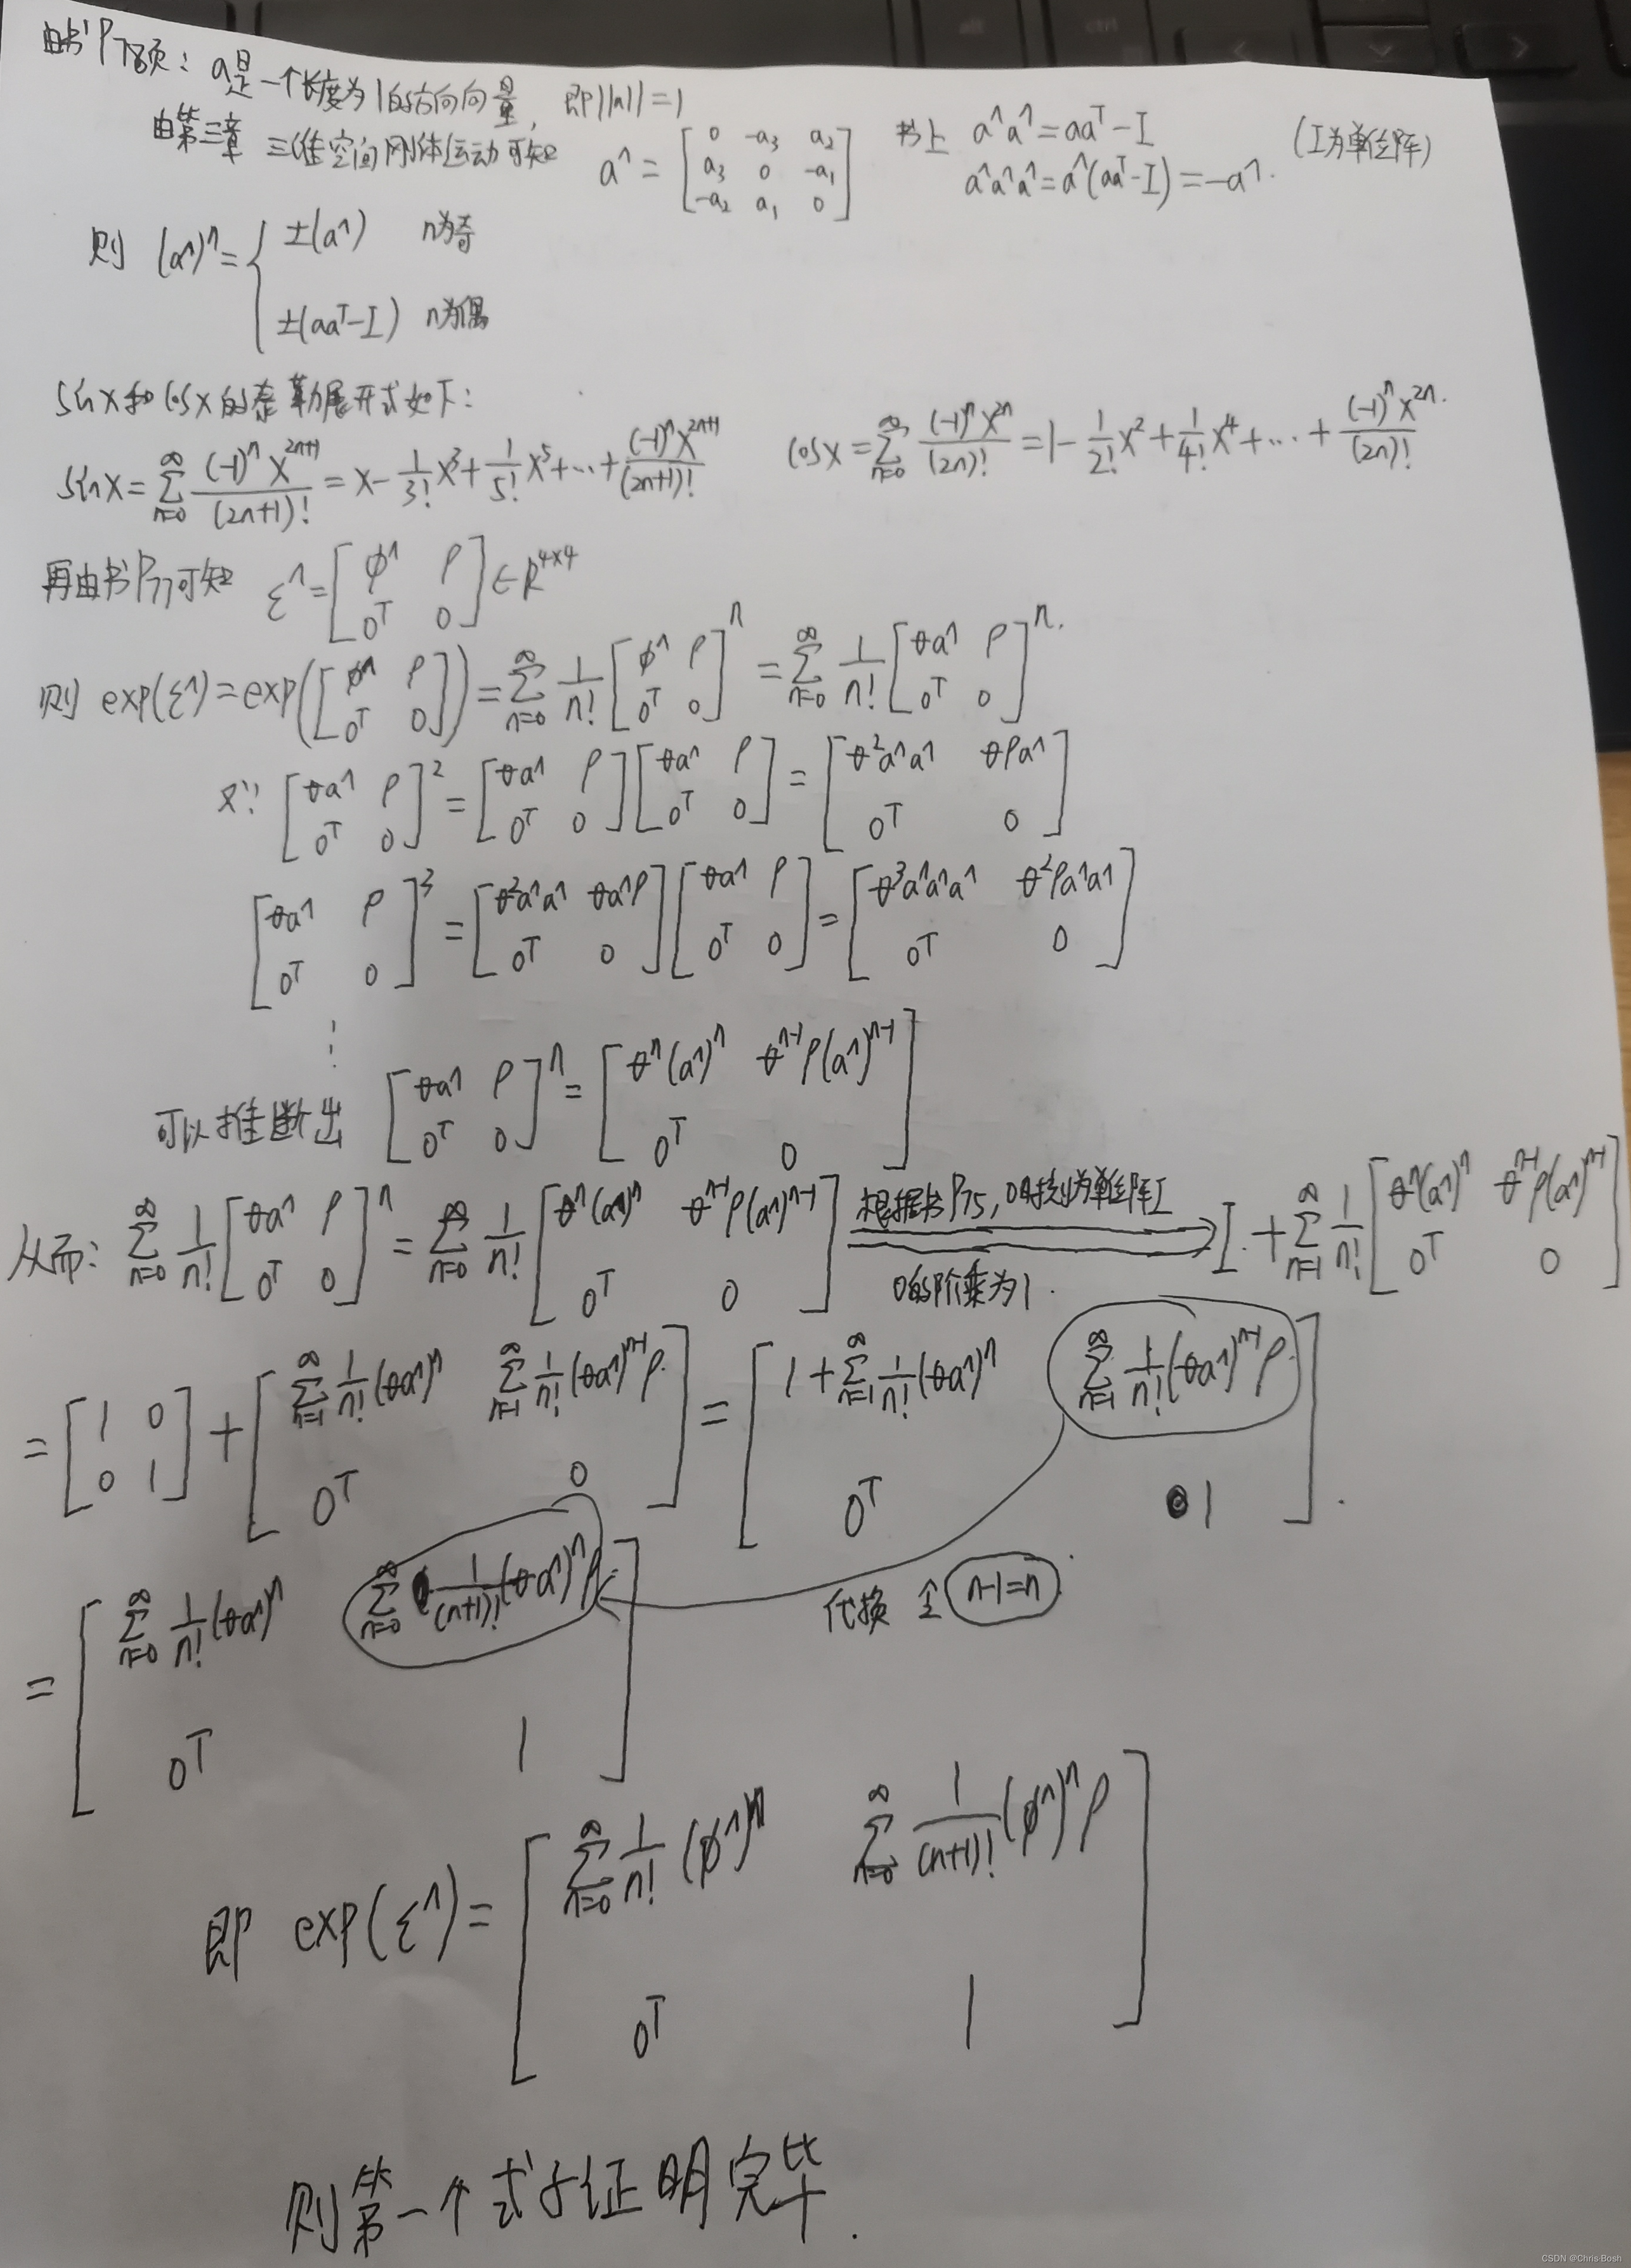 由书P78页：a是一个长度为1的方向向量，即||a||=1
由第三章 三维空间刚体运动可知 a^ = [0 -a₃ a₂; a₃ 0 -a₁; -a₂ a₁ 0] 书上 a^a^=aaᵀ-I (I为单位阵)
a^a^a^=a^(aaᵀ-I)=-a^.
则 (a^)ⁿ = { ±(a^) n为奇
±(aaᵀ-I) n为偶
sinx和cosx的泰勒展开式如下：
sinx = ∑_{n=0}^{∞} (-1)ⁿx²ⁿ⁺¹/(2n+1)! = x - 1/3! x³ + 1/5! x⁵ + ⋯ + (-1)ⁿx²ⁿ⁺¹/(2n+1)! cosx = ∑_{n=0}^{∞} (-1)ⁿx²ⁿ/(2n)! = 1 - 1/2! x² + 1/4! x⁴ + ⋯ + (-1)ⁿx²ⁿ/(2n)!.
再由书P77可知 ξ^ = [ϕ^ ρ; 0ᵀ 0] ∈ R⁴ˣ⁴
则 exp(ξ^) = exp([ϕ^ ρ; 0ᵀ 0]) = ∑_{n=0}^{∞} 1/n! [ϕ^ ρ; 0ᵀ 0]ⁿ = ∑_{n=0}^{∞} 1/n! [θa^ ρ; 0ᵀ 0]ⁿ.
又∵ [θa^ ρ; 0ᵀ 0]² = [θa^ ρ; 0ᵀ 0][θa^ ρ; 0ᵀ 0] = [θ²a^a^ θρa^; 0ᵀ 0]
[θa^ ρ; 0ᵀ 0]³ = [θ²a^a^ θa^ρ; 0ᵀ 0][θa^ ρ; 0ᵀ 0] = [θ³a^a^a^ θ²ρa^a^; 0ᵀ 0]
⋮
可以推断出 [θa^ ρ; 0ᵀ 0]ⁿ = [θⁿ(a^)ⁿ θⁿ⁻¹ρ(a^)ⁿ⁻¹; 0ᵀ 0]
从而: ∑_{n=0}^{∞} 1/n! [θa^ ρ; 0ᵀ 0]ⁿ = ∑_{n=0}^{∞} 1/n! [θⁿ(a^)ⁿ θⁿ⁻¹ρ(a^)ⁿ⁻¹; 0ᵀ 0] 根据书P75，0时为单位阵I ⟹ I + ∑_{n=1}^{∞} 1/n! [θⁿ(a^)ⁿ θⁿ⁻¹ρ(a^)ⁿ⁻¹; 0ᵀ 0]
0的阶乘为1.
= [1 0; 0 1] + [∑_{n=1}^{∞} 1/n! (θa^)ⁿ ∑_{n=1}^{∞} 1/n! (θa^)ⁿ⁻¹ρ; 0ᵀ 0] = [1+∑_{n=1}^{∞} 1/n! (θa^)ⁿ ∑_{n=1}^{∞} 1/n! (θa^)ⁿ⁻¹ρ; 0ᵀ 1].
= [∑_{n=0}^{∞} 1/n! (θa^)ⁿ ∑_{n=0}^{∞} 1/(n+1)! (θa^)ⁿρ; 0ᵀ 1]
代换 令 n-1=n
即 exp(ξ^) = [∑_{n=0}^{∞} 1/n! (ϕ^)ⁿ ∑_{n=0}^{∞} 1/(n+1)! (ϕ^)ⁿρ; 0ᵀ 1]
则第一个式子证明完毕.
CSDN @Chris·Bosh